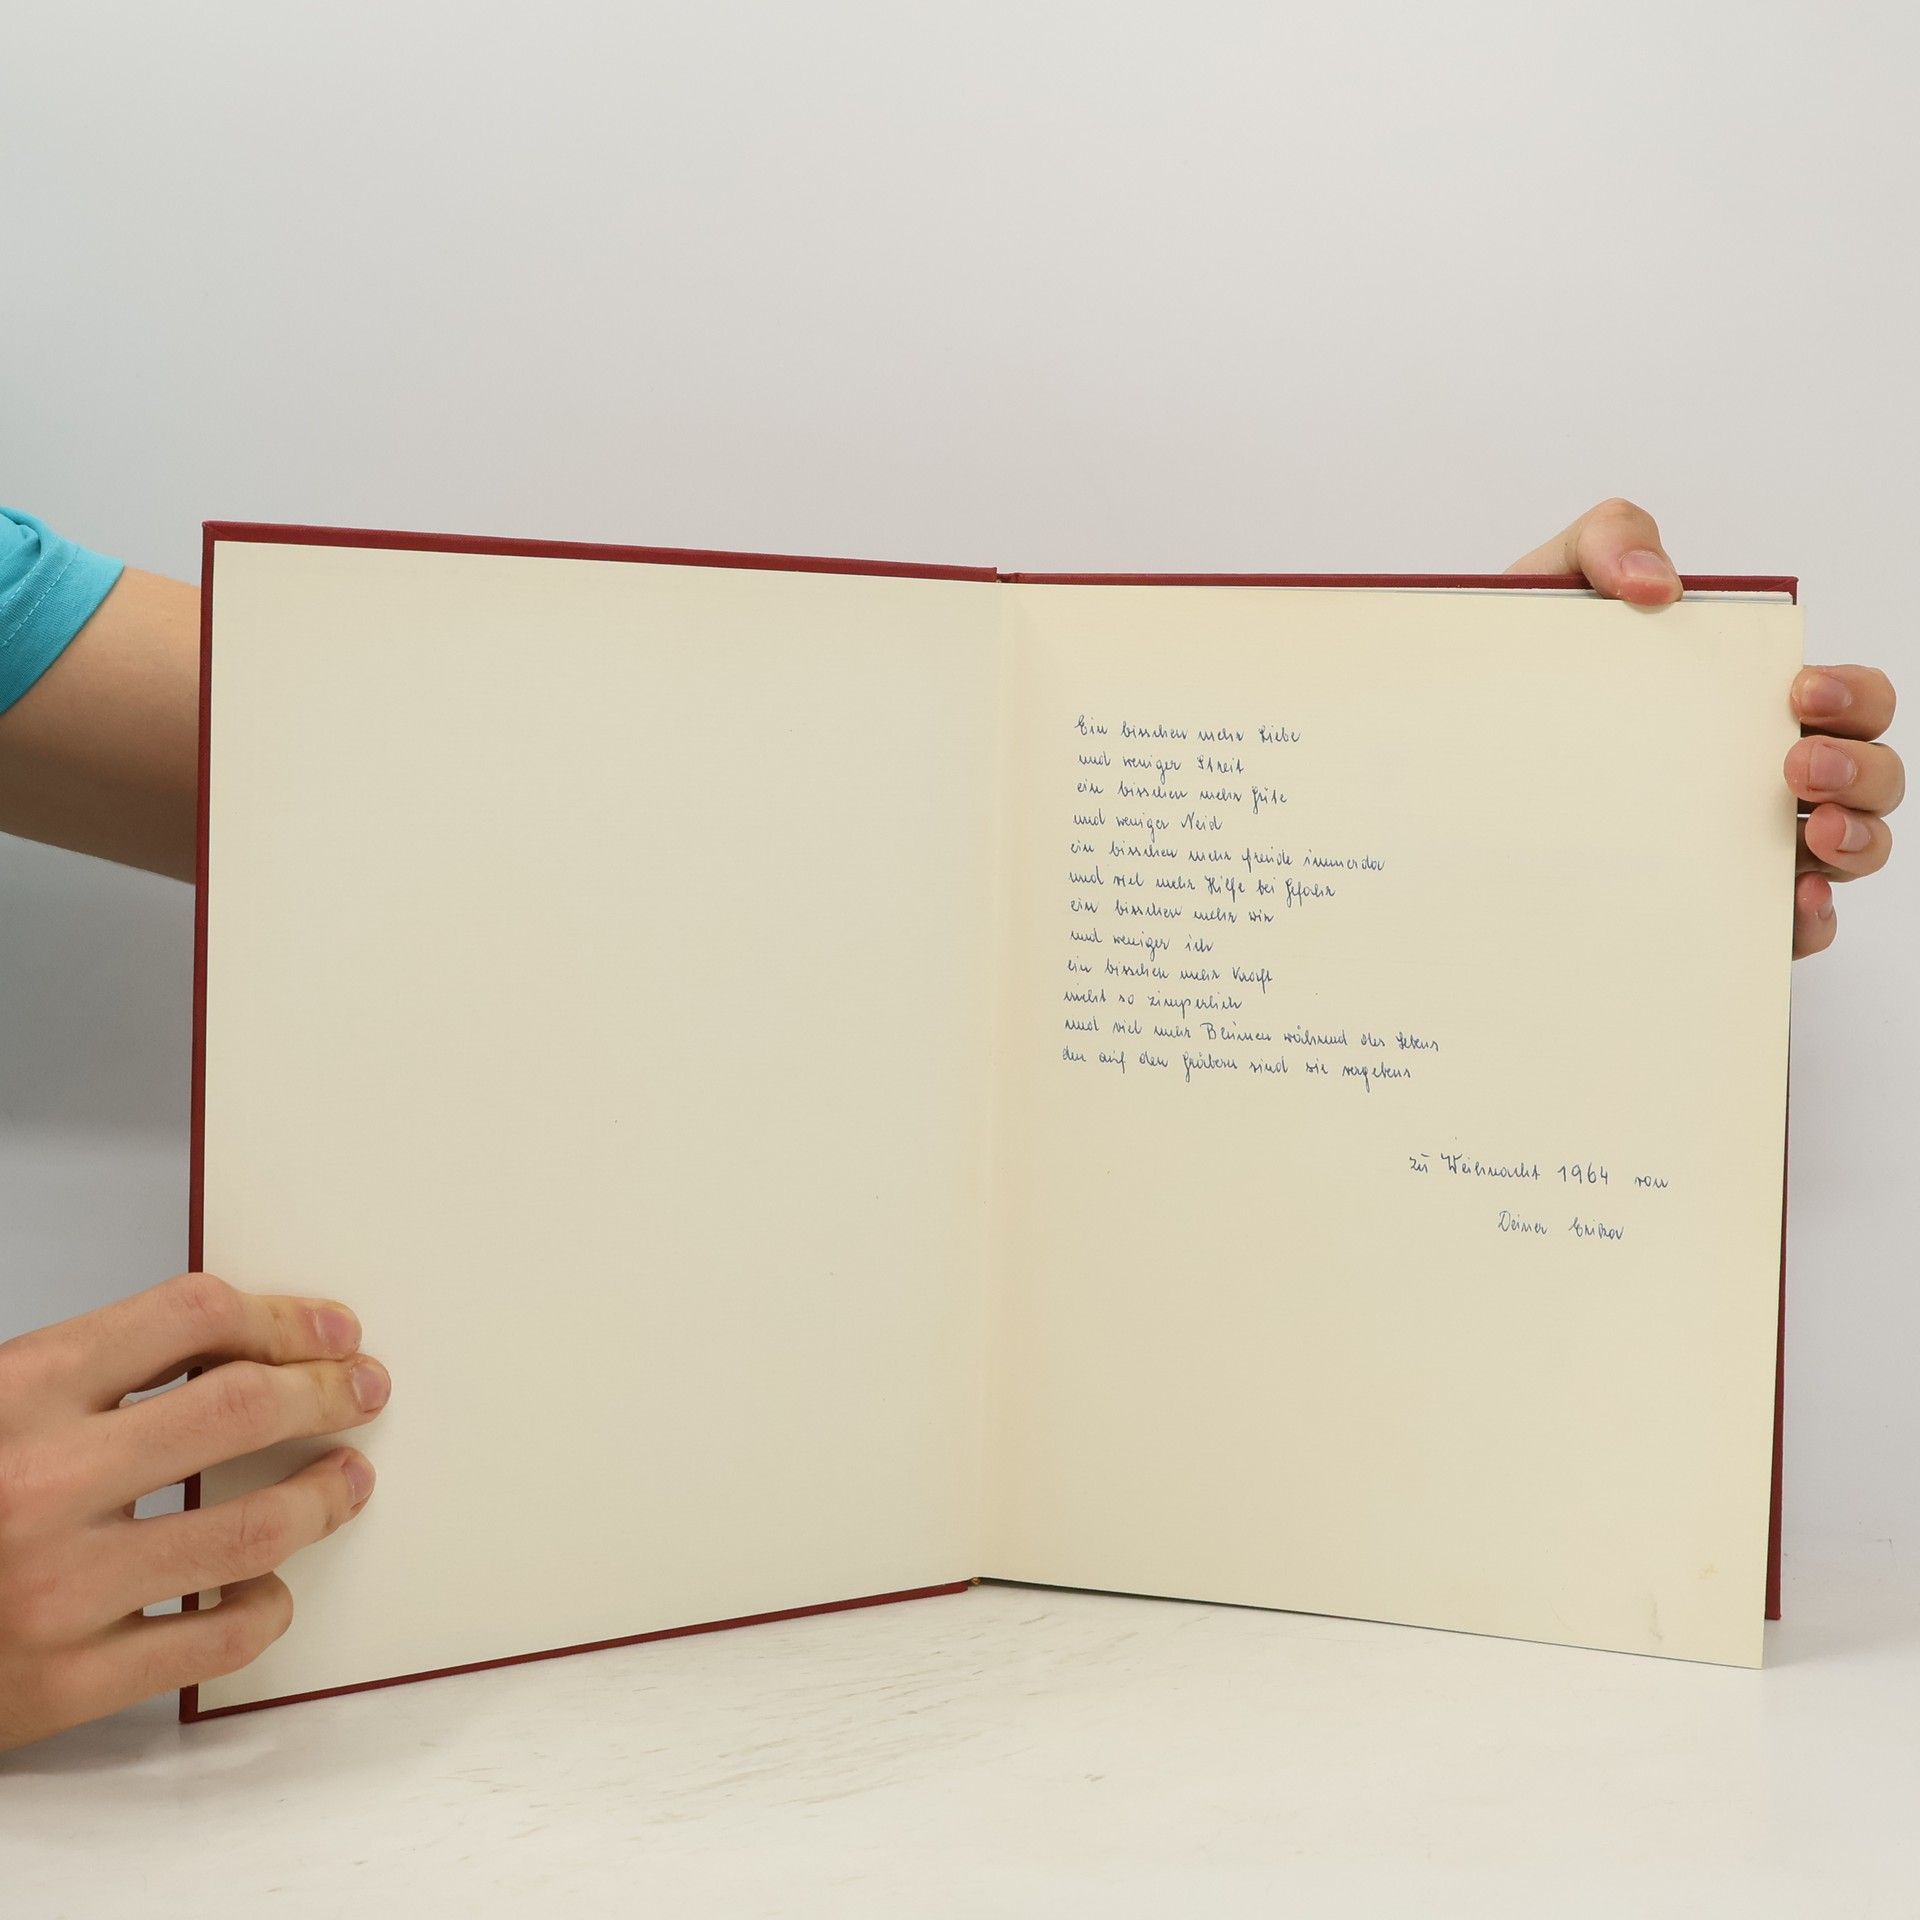 Ein bisschen mehr Liebe
und weniger Streit
ein bisschen mehr Güte
und weniger Neid
ein bisschen mehr Freude immerdar
und viel mehr Hilfe bei Gefahr
ein bisschen mehr wir
und weniger ich
ein bisschen mehr Kraft
nicht so zimperlich
und viel mehr Blumen während des Lebens
den auf den Gräbern sind sie vergebens
zu Weihnacht 1964 von
Deiner Erika